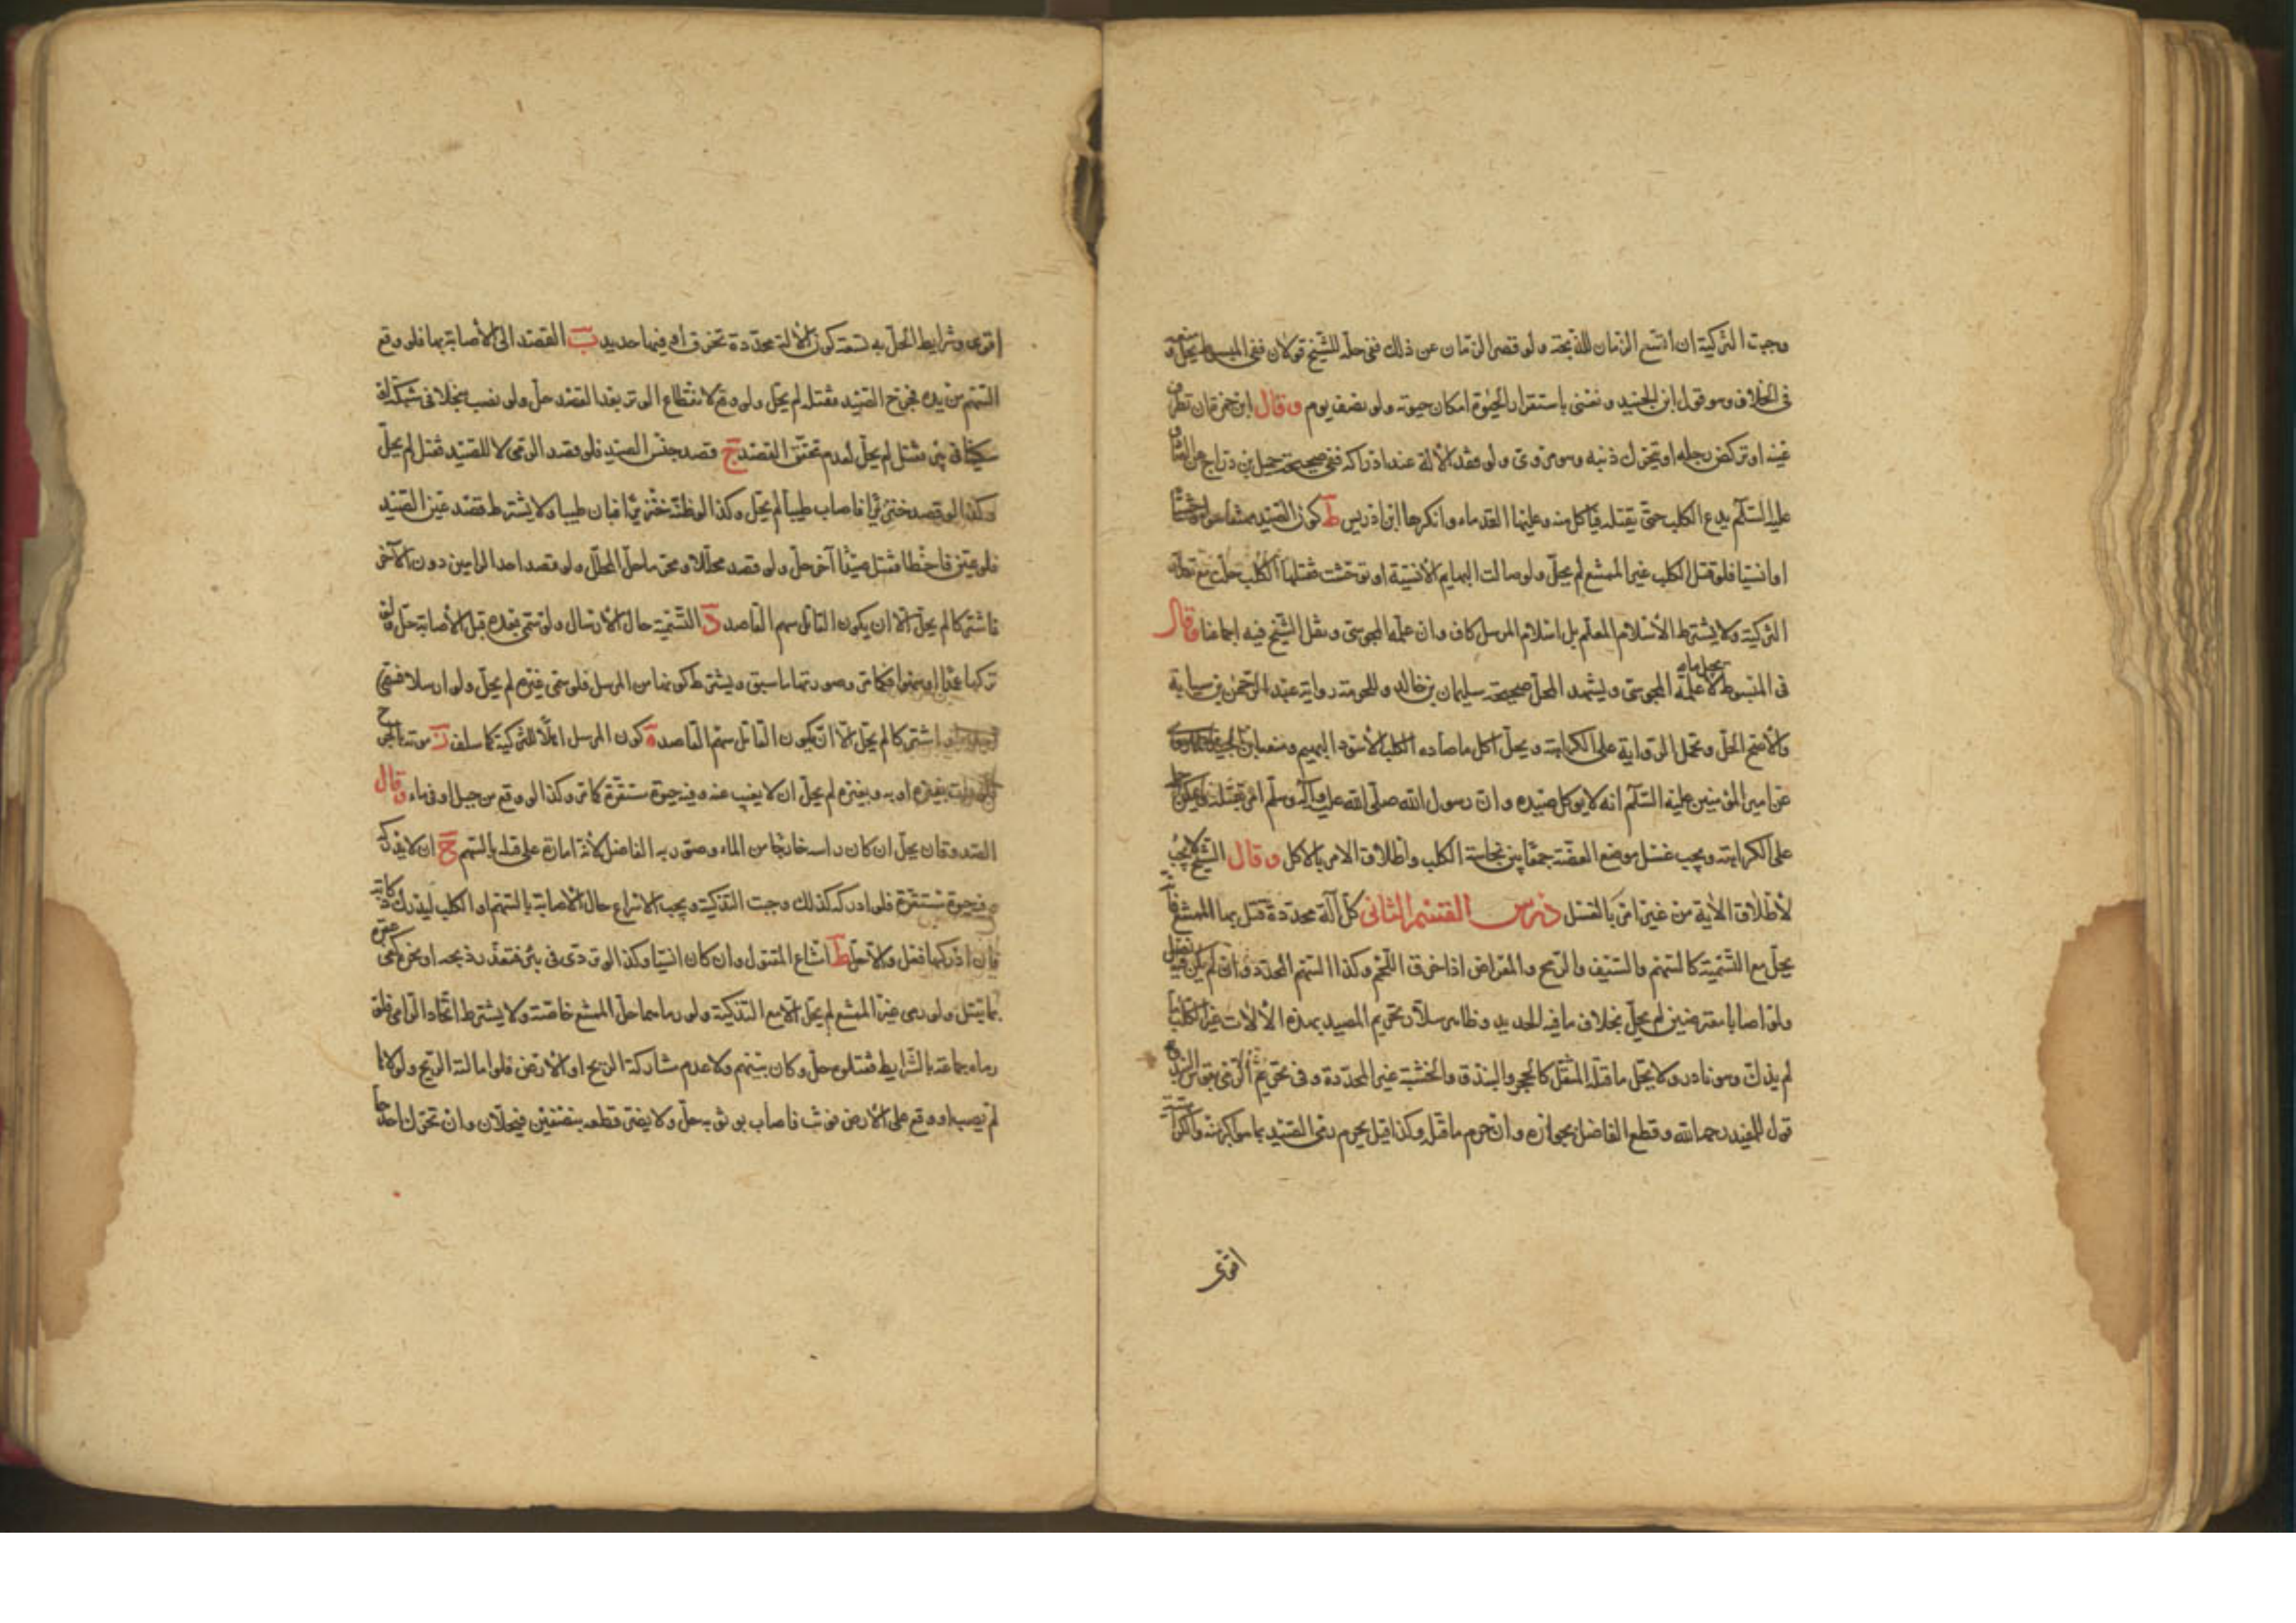 وجبت التزكية ان اتسع الزمان للذبحة ولو قصر الزمان عن ذلك ففى حله للشيخ قولان ففى المبسوط يحل ومنعه
فى الخلاف وهو قول ابن الجنيد ونعنى باستقرار الحيوة امكان حيوته ولو نصف يوم وقال ابن حمزة ان تطرف
عينه او تركض رجله او تحرك ذنبه وهو مروى ولو فقد الالة عند ادراكه ففى صحيحة جميل بن دراج عن الصادق
عليه السلم يدع الكلب حتى يقتله فياكل منه وعليها القدماء وانكرها ابن ادريس ط كون الصيد ممتنعا سواء
او انسيا فلو قتل الكلب غير الممتنع لم يحل ولو صالت البهايم الانسية او توحشت فقتلها الكلب حلت مع تعذر
التزكية ولا يشترط الاسلام المعلم بل اسلام المرسل كاف وان علمه المجوسى ونقل الشيخ فيه اجماعنا وقال
فى المبسوط لا يحل ما علمه المجوسى ويشهد المحل صحيحة سليمان بن خالد وللحرمة رواية عبد الرحمن بن سيابة
والاصح الحل وتحمل الرواية على الكراهة ويحل اكل ما صاده الكلب الاسود البهيم ومنعه ابن الجنيد
عن امير المؤمنين عليه السلم انه لا يوكل صيده وان رسول الله صلى الله عليه وآله وسلم امر بقتله
على الكراهة ويجب غسل موضع العضة جمعا بين نجاسة الكلب واطلاق الامر بالاكل وقال الشيخ لا يجب
لاطلاق الاية من غير امر بالغسل درس القسم الثانى كل آلة محددة قتل بها الممتنع فانه
يحل مع التسمية كالسهم والسيف والرمح والمعراض اذا خرق اللحم وكذا السهم المحدد وان لم يكن فيه نصل
ولو اصابا معترضين لم يحل بخلاف ما فيه الحديد وظاهر سلار تحريم المصيد بهذه الالات غير الكلب ما
لم يذك وهو نادر ولا يحل ما قتله المثقل كالحجر والبندق والخشبة غير المحددة وفى تحريم الرمى بقوس البندق
قول للمفيد رحمه الله وقطع الفاضل بجوازه وان حرم ما قتله وكذا قيل يحرم رمى الصيد بما هو اكبر منه والكراهية
اقوى
اقوى وشرايط الحل به تسعة كون الالة محددة تخرق او فيها حديد ب القصد الى الاصابة بها فلو وقع
السهم من يده فجرح الصيد فقتله لم يحل ولو وقع لانقطاع الوتر بعد القصد حل ولو نصب منجلا فى شبكة او
سكينا فى بئر فقتل لم يحل لعدم تحقق القصد ج قصد جنس الصيد فلو قصد الرمى لا للصيد فقتل لم يحل
وكذا لو قصد خنزيرا فاصاب ظبيا لم يحل وكذا لو ظنه خنزيرا فبان ظبيا ولا يشترط قصد عين الصيد
فلو عين فاخطا فقتل صيدا آخر حل ولو قصد محللا ومحرما حل المحلل ولو قصد احد الراميين دون الآخر
فاشتركا لم يحل الا ان يكون القاتل سهم القاصد د التسمية حال الارسال ولو سمى بعده قبل الاصابة حل ولو
تركها عمدا او سهوا فكما مر وصورتها ما سبق ويشترط كونها من المرسل فلو سمى غيره لم يحل ولو ارسلا فسمى
اشتركا لم يحل الا ان يكون القاتل سهم القاصد ه كون المرسل اهلا للتزكية كما سلف ز موته بالجرح
بغيره او به وبغيره لم يحل ان لا يغيب عنه وفيه حيوة مستقرة كما مر وكذا لو وقع من جبل او فى ماء وقال
الصدوقان يحل ان كان راسه خارجا من الماء وصوبه الفاضل لانه امارة على قتله بالسهم ح ان لا يدركه
وفيه حيوة مستقرة فلو ادركه كذلك وجبت التذكية ويجب الاسراع حال الاصابة بالسهم او الكلب ليدرك ذكاته
فان ادركها فعل والا حل ط امتناع المقتول وان كان انسيا وكذا لو تردى فى بئر فتعذر ذبحه او نحره كفى عقره
بما يقتل ولو رمى غير الممتنع لم يحل الا مع التذكية ولو رماهما حل الممتنع خاصة ولا يشترط اتحاد الرامى فلو
رماه جماعة بالشرايط فقتلوه حل وكان بينهم ولا عدم مشاركة الريح او الارض فلو امالته الريح ولولاها
لم يصب او وقع على الارض فوثب فاصاب بوثوبه حل ولا يضر قطعه بنصفين فيحلان وان تحرك احدهما